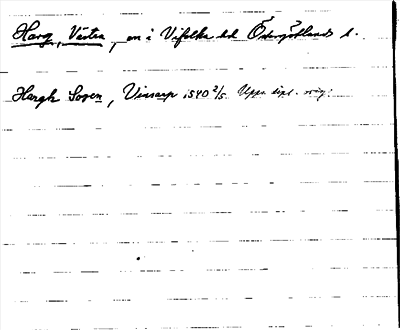 Harg, Västra, sn i Vifolka hd Östergötlands l.
Hargh Sogen, Vinsarp 1540 2/5 Upps. dipl. orig.